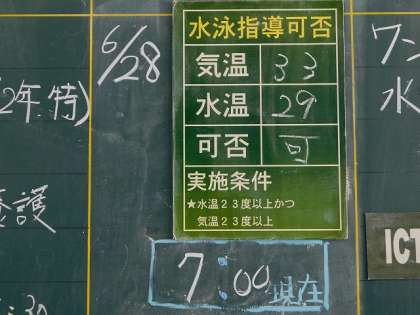 6/28
水泳指導可否
気温 33
水温 29
可否 可
実施条件
★水温23度以上かつ
気温23度以上
7:00 現在
2年.特)
養護
:30
ワン
水
ICT